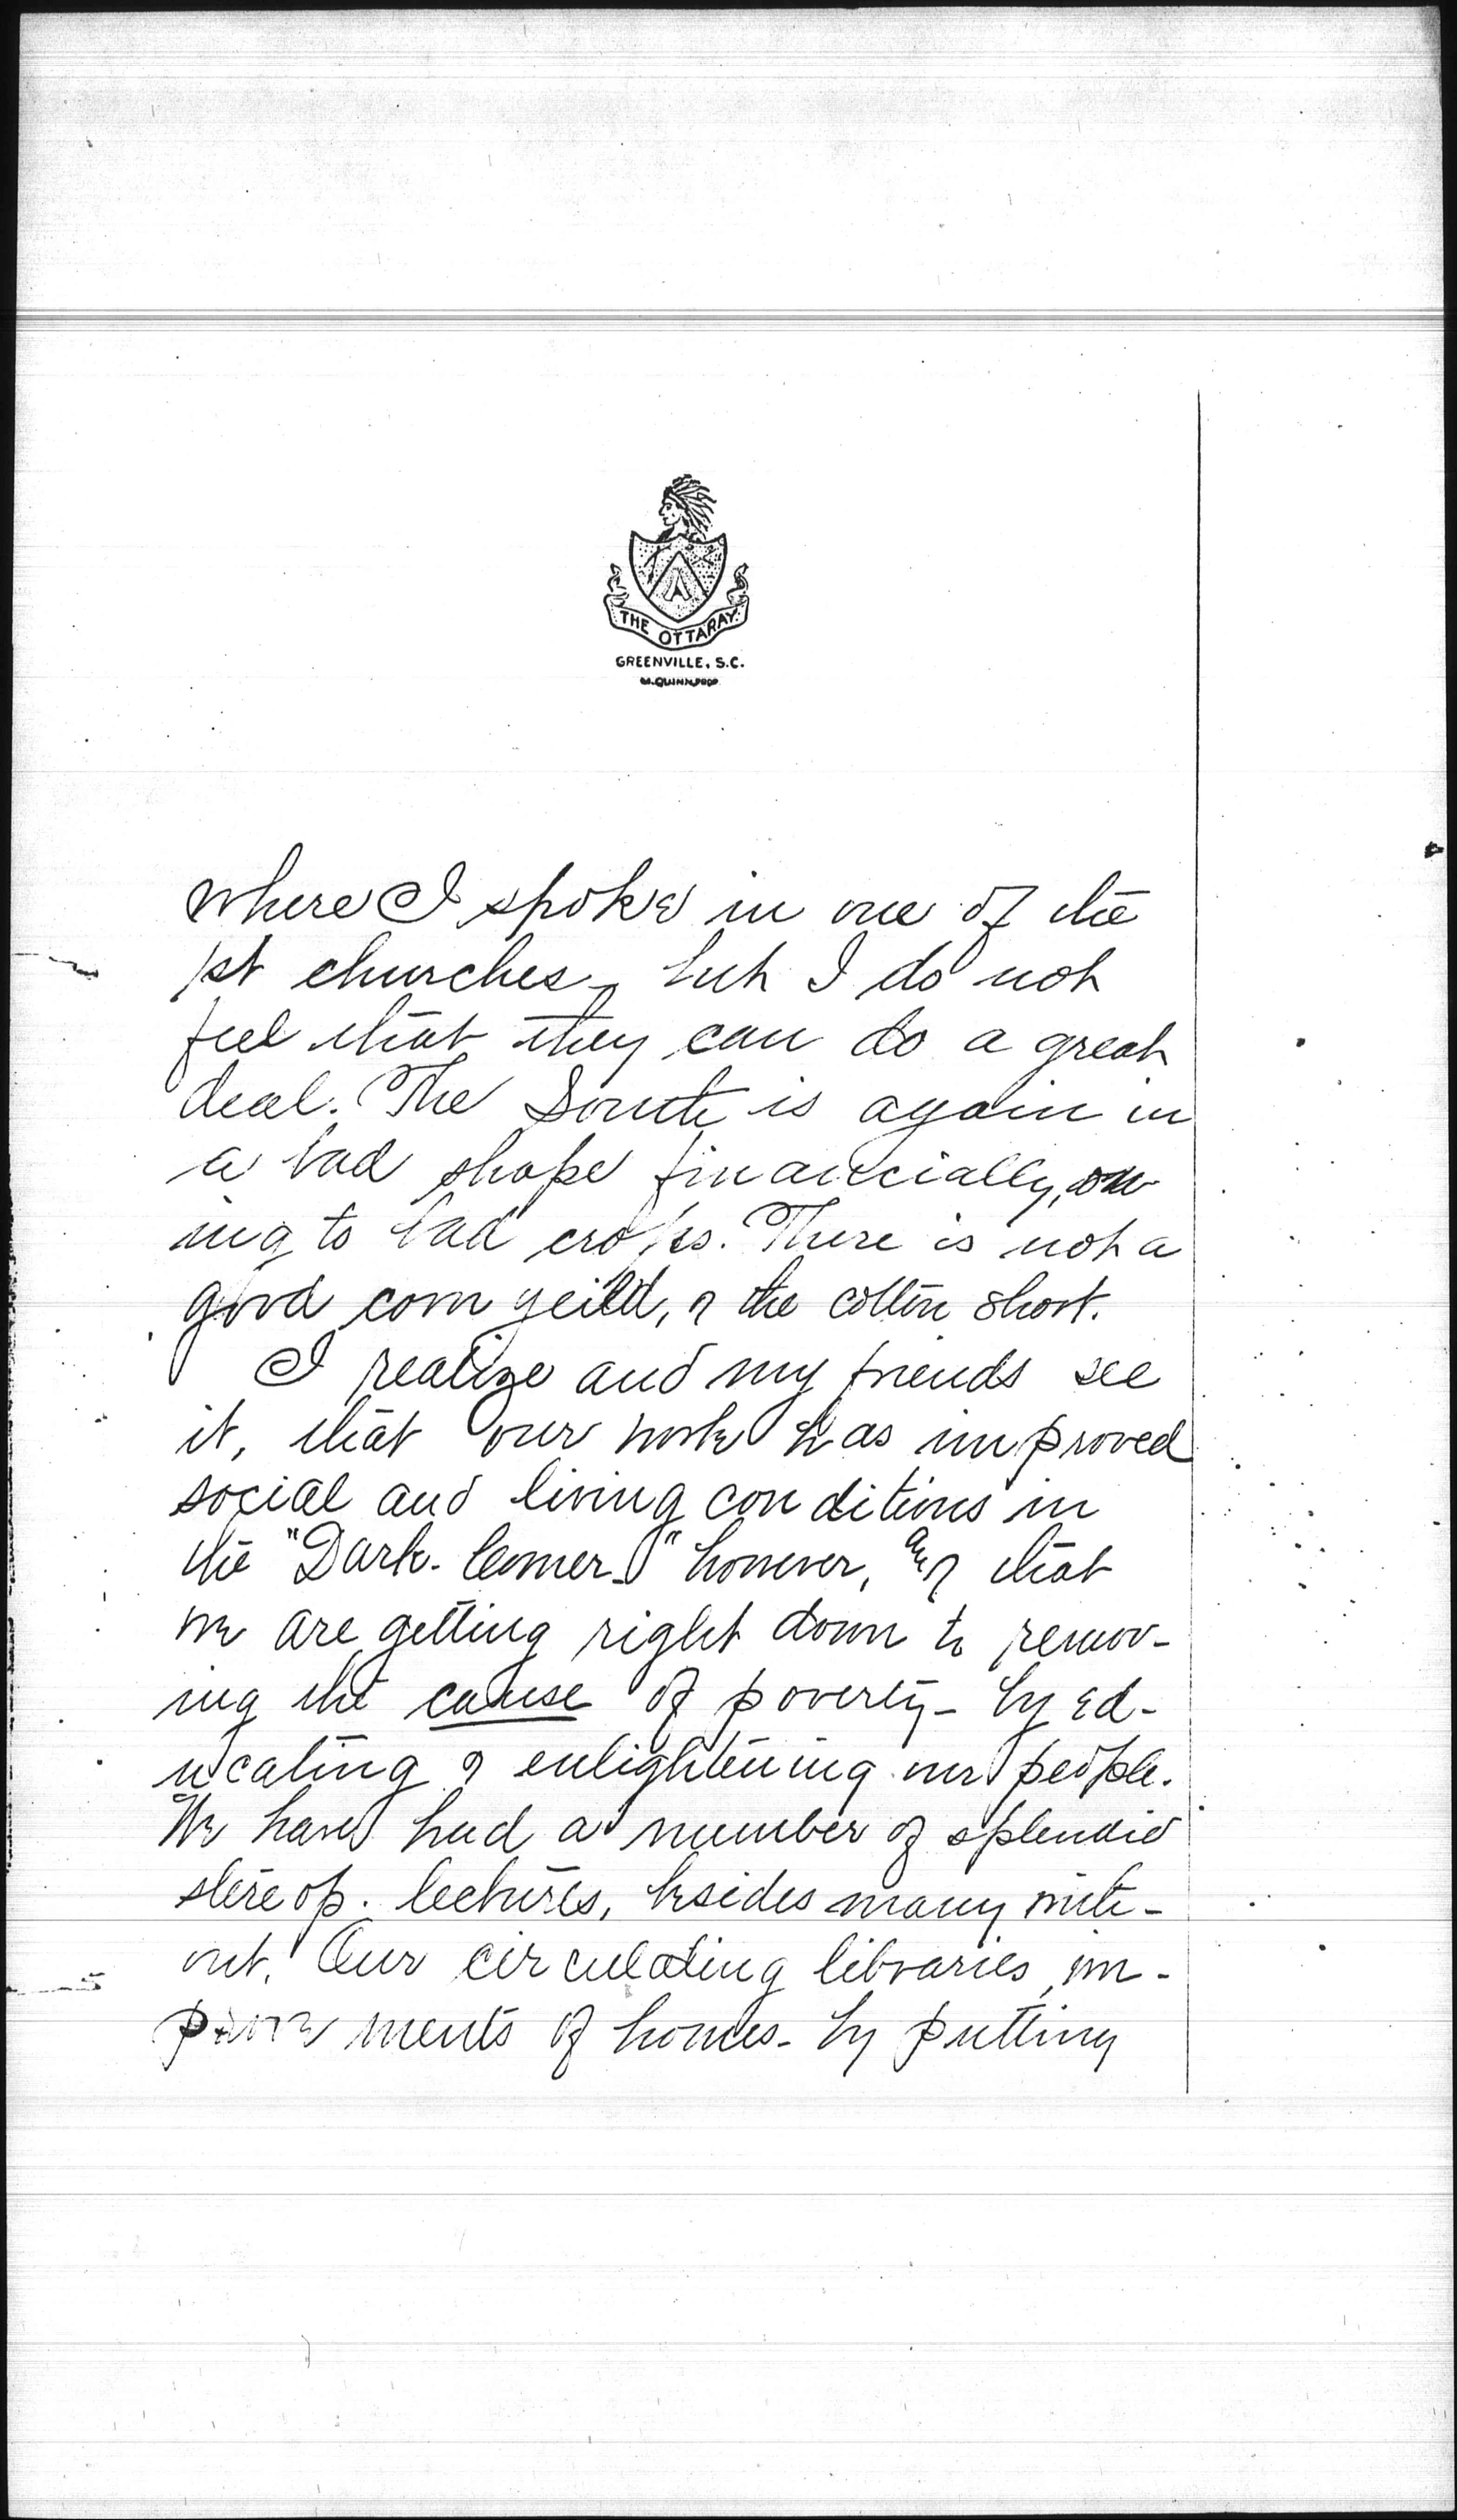 THE OTTARAY
GREENVILLE, S.C.
M. QUINN, PROP.
where I spoke in one of the
1st churches, but I do not
feel that they can do a great
deal. The South is again in
a bad shape financially, ow
ing to bad crops. There is not a
good corn yeild, & the cotton short.
I realize and my friends see
it, that our work has improved
social and living conditions in
the "Dark-Corner" however, & that
we are getting right down to remov-
ing the cause of poverty - by ed-
ucating & enlightening our people.
We have had a number of splendid
stereop. lectures, besides many with-
out. Our circulating libraries, im-
prove ments of homes - by putting